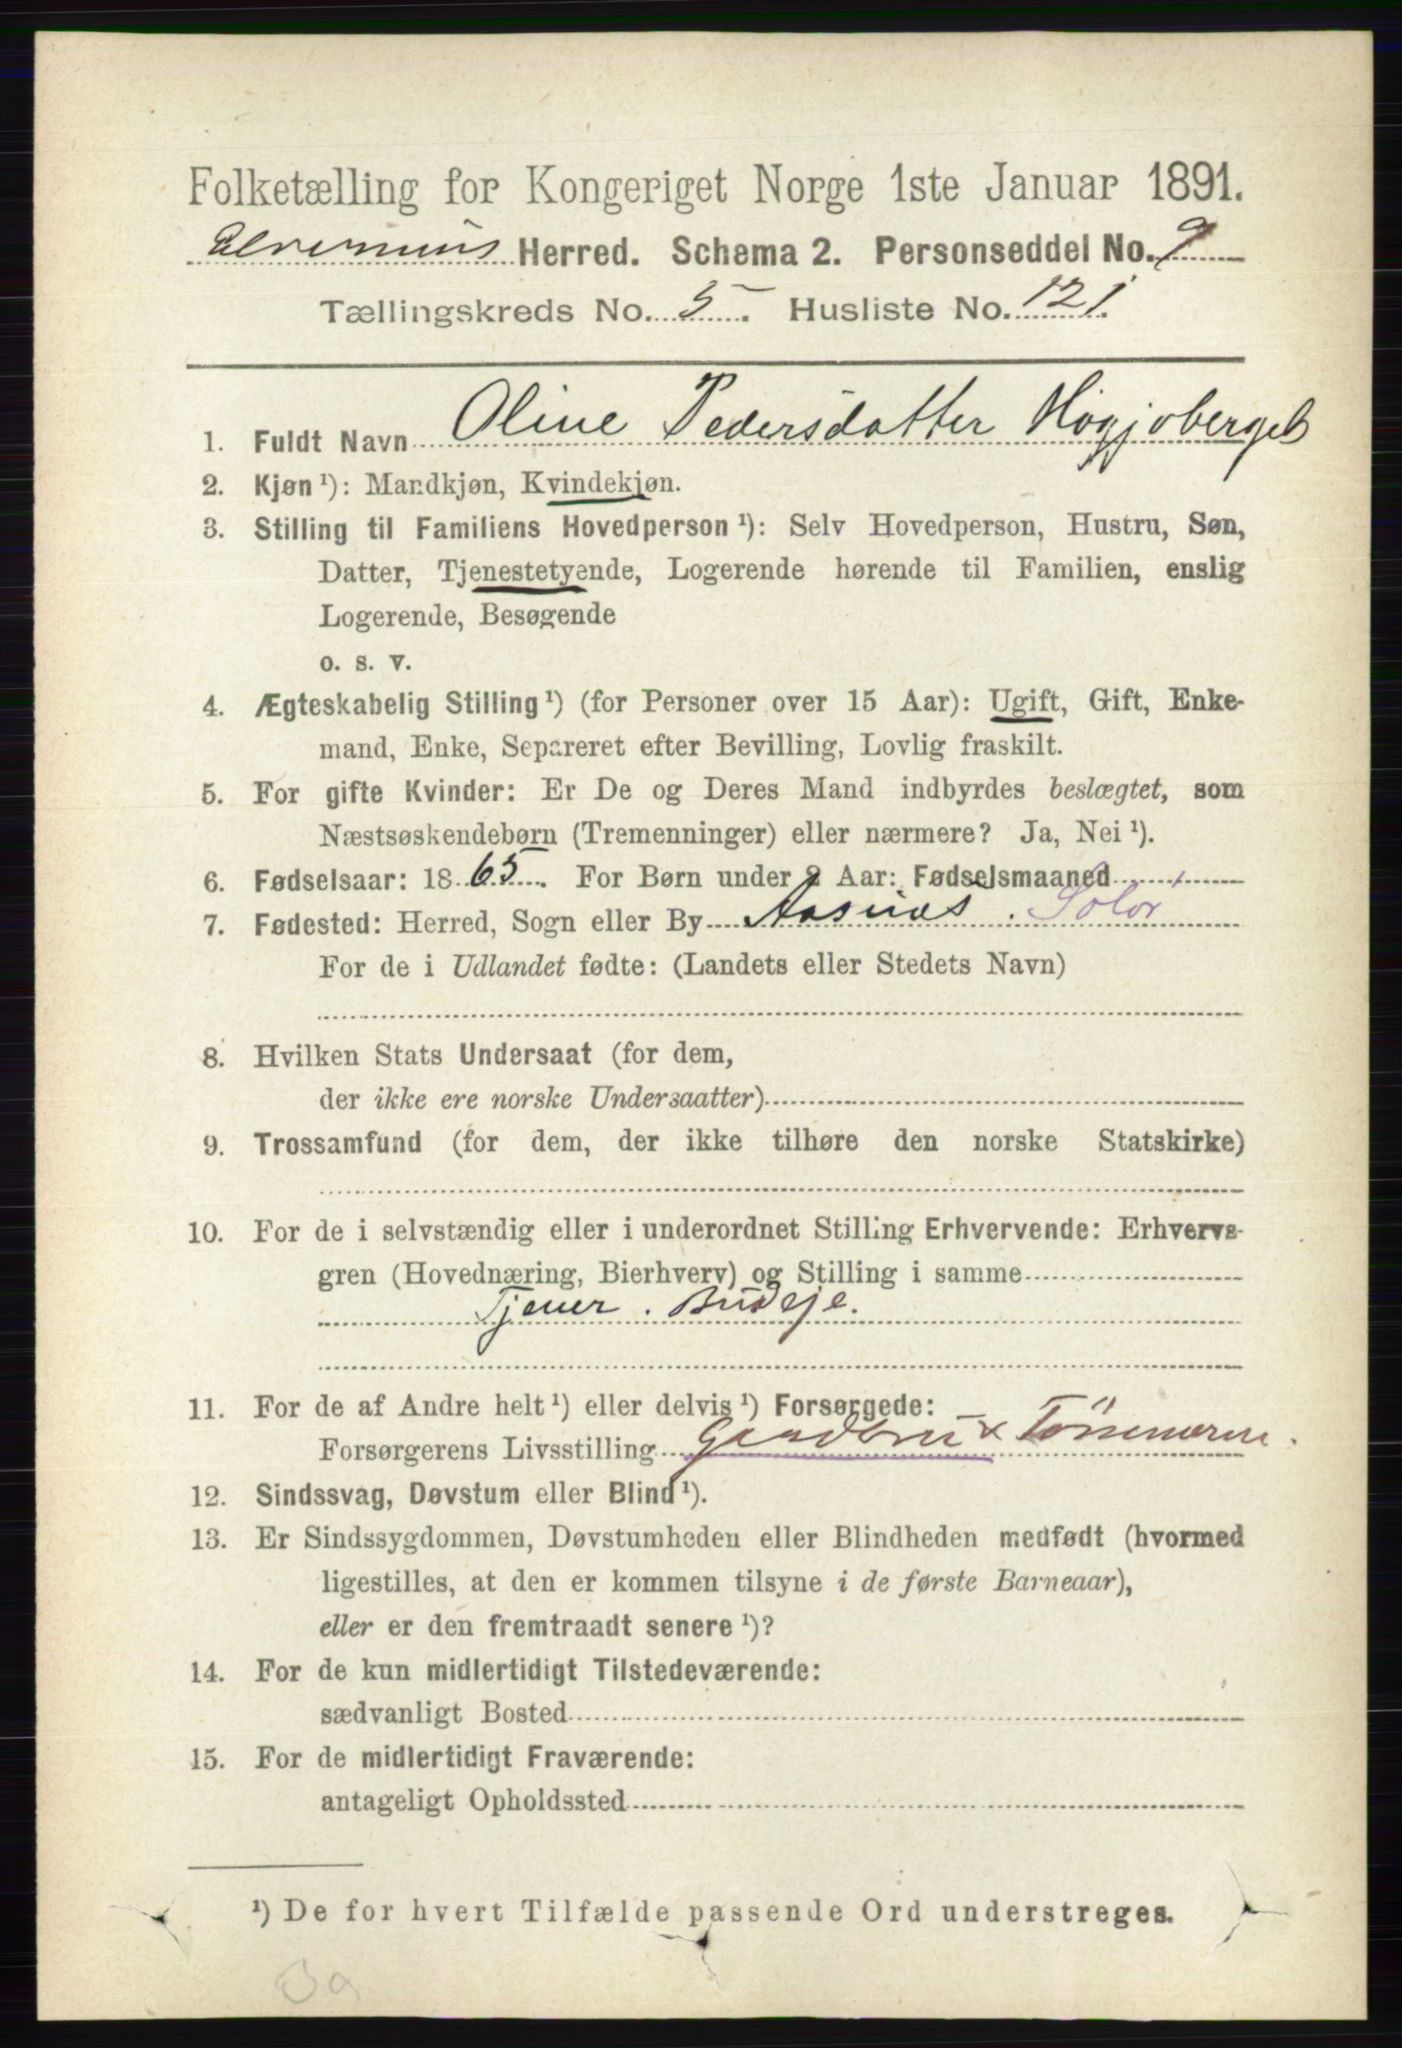 Folketælling for Kongeriget Norge 1ste Januar 1891.
Elverums Herred. Schema 2. Personseddel No. 9
Tællingskreds No. 5. Husliste No. 121.
1. Fuldt Navn Oline Pedersdatter
2. Kjøn ¹): Mandkjøn, Kvindekjøn.
3. Stilling til Familiens Hovedperson ¹): Selv Hovedperson, Hustru, Søn,
Datter, Tjenestetyende, Logerende hørende til Familien, enslig
Logerende, Besøgende
o. s. v.
4. Ægteskabelig Stilling ¹) (for Personer over 15 Aar): Ugift, Gift, Enke-
mand, Enke, Separeret efter Bevilling, Lovlig fraskilt.
5. For gifte Kvinder: Er De og Deres Mand indbyrdes beslægtet, som
Næstsøskendebørn (Tremenninger) eller nærmere? Ja, Nei ¹).
6. Fødselsaar: 1865. For Børn under 2 Aar: Fødselsmaaned
7. Fødested: Herred, Sogn eller By Aasnæs. Solør
For de i Udlandet fødte: (Landets eller Stedets Navn)
8. Hvilken Stats Undersaat (for dem,
der ikke ere norske Undersaatter)
9. Trossamfund (for dem, der ikke tilhøre den norske Statskirke)
10. For de i selvstændig eller i underordnet Stilling Erhvervende: Erhvervs-
gren (Hovednæring, Bierhverv) og Stilling i samme
Tjener. Budeje.
11. For de af Andre helt ¹) eller delvis ¹) Forsørgede:
Forsørgerens Livsstilling Gaardbru x
12. Sindssvag, Døvstum eller Blind ¹).
13. Er Sindssygdommen, Døvstumheden eller Blindheden medfødt (hvormed
ligestilles, at den er kommen tilsyne i de første Barneaar),
eller er den fremtraadt senere ¹)?
14. For de kun midlertidigt Tilstedeværende:
sædvanligt Bosted
15. For de midlertidigt Fraværende:
antageligt Opholdssted
¹) De for hvert Tilfælde passende Ord understreges.